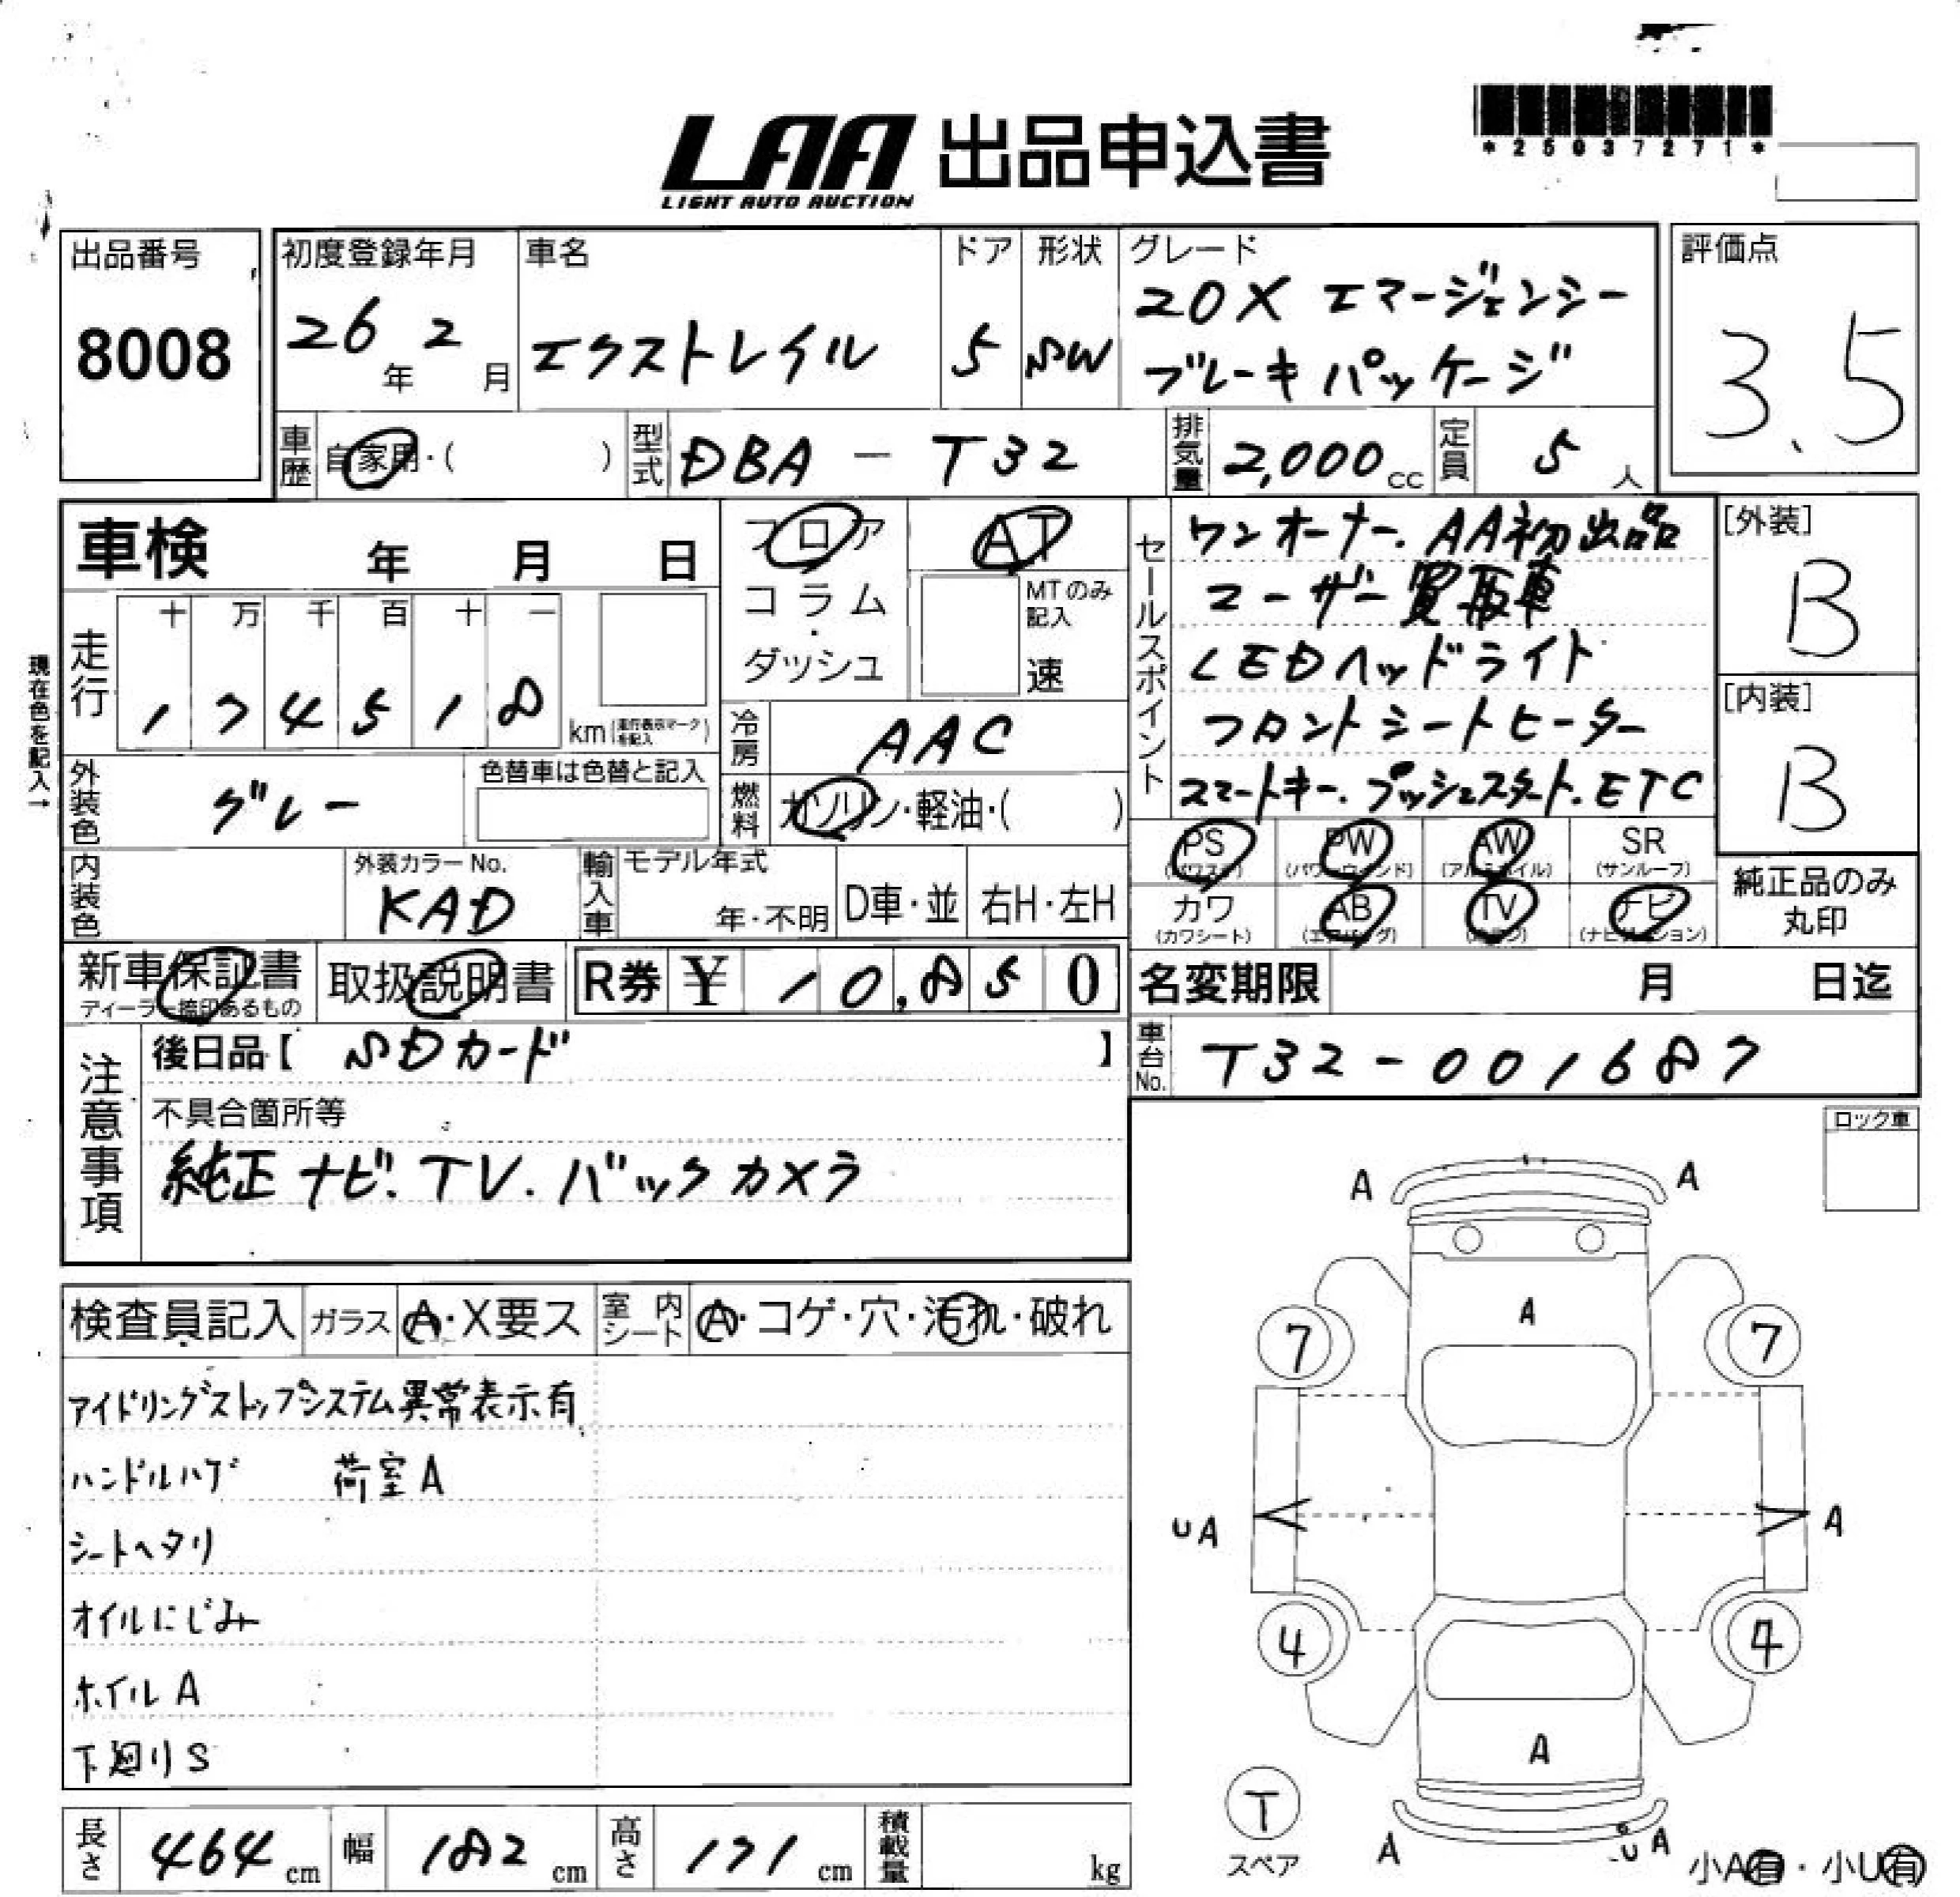 LAA 出品申込書
LIGHT AUTO AUCTION
*25037271*
出品番号
8008
初度登録年月
26年 2月
車名
エクストレイル
ドア
5
形状
SW
グレード
20X エマージェンシー
ブレーキパッケージ
評価点
3.5
車歴 自家用・( )
型式 DBA - T32
排気量 2,000 cc
定員 5 人
車検 年 月 日
フロア
コラム
・
ダッシュ
AT
MTのみ記入
速
走行
十 万 千 百 十 一
1 7 4 5 1 8
km(走行表示マークを記入)
現在色を記入→
冷房 AAC
燃料 ガソリン・軽油・( )
外装色 グレー
色替車は色替と記入
内装色
外装カラーNo.
KAD
輸入車
モデル年式
年・不明
D車・並
右H・左H
セールスポイント
ワンオーナー. AA初出品
ユーザー買取車
LEDヘッドライト
フロントシートヒーター
スマートキー. プッシュスタート. ETC
[外装]
B
[内装]
B
PS (パワステ)
PW (パワーウィンド)
AW (アルミホイル)
SR (サンルーフ)
カワ (カワシート)
AB (エアバッグ)
TV
ナビ (ナビゲーション)
純正品のみ
丸印
新車保証書
ディーラー捺印あるもの
取扱説明書
R券 ¥ 10,850
名変期限 月 日迄
車台No. T32-001687
注意事項
後日品【 SDカード 】
不具合箇所等
純正ナビ. TV. バックカメラ
ロック車
検査員記入
ガラス A・X要ス
室内シート A・コゲ・穴・汚れ・破れ
アイドリングストップシステム異常表示有
ハンドルハゲ 荷室A
シートヘタリ
オイルにじみ
ホイルA
下廻りS
A A
A
7 7
UA A
4 4
A
T
スペア
A UA
小A有・小U有
長さ 464 cm
幅 182 cm
高さ 171 cm
積載量 kg